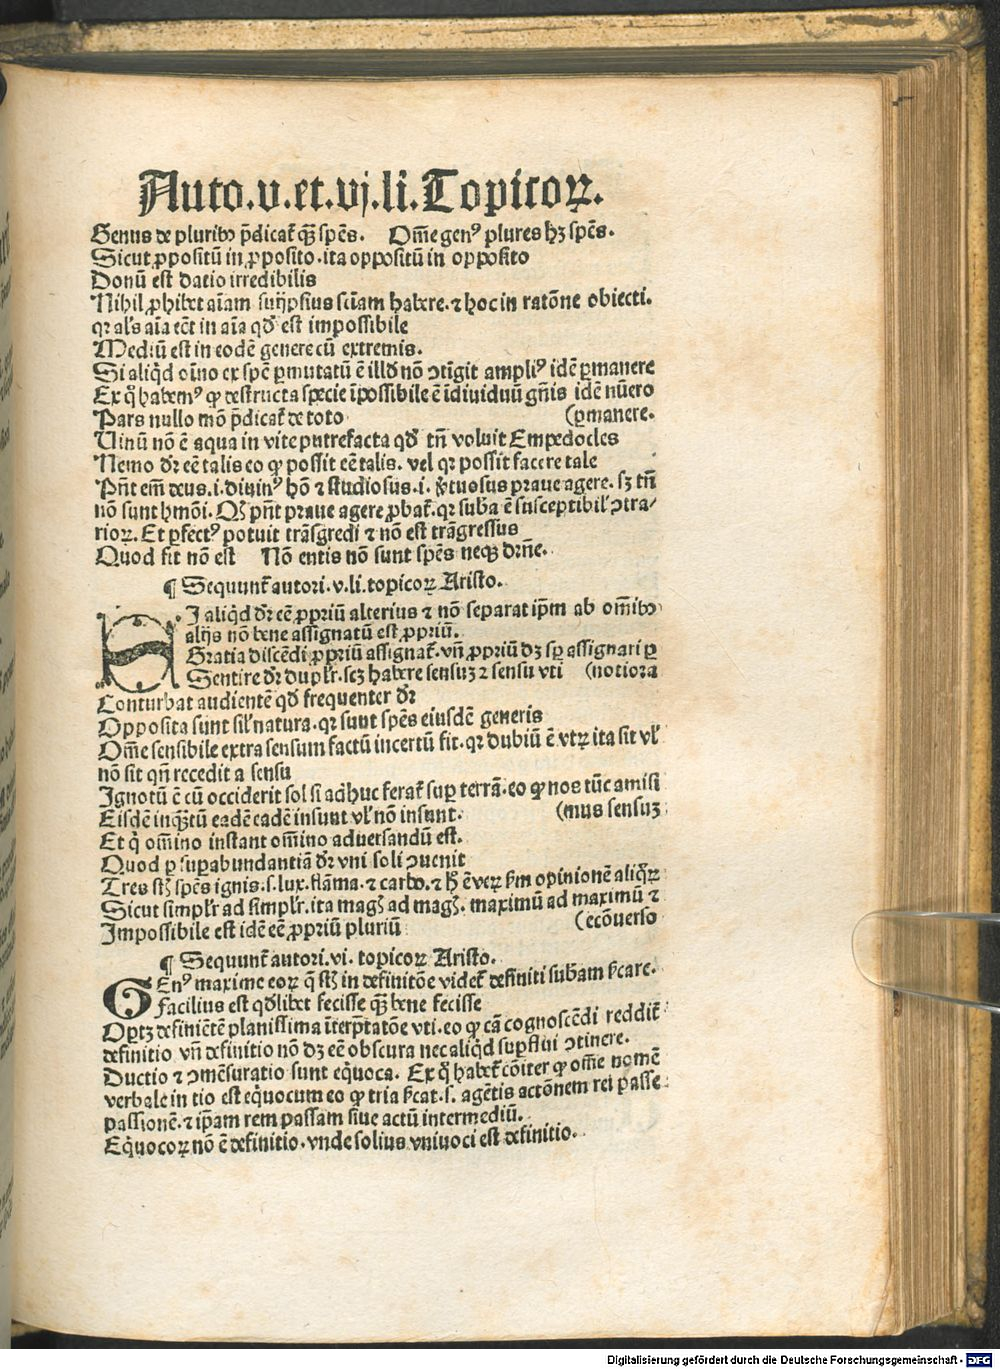 Auto.v.et.vj.li.Topicoꝝ.
Genus de pluribꝰ p̄dicat̄ qꝫ̄ spēs. Om̄e genꝰ plures hꝫ spēs.
Sicut ꝓpositū in ꝓposito.ita oppositū in opposito
Donū est datio irredibilis
Nihil ꝓhibet aīam suijpsius sciam̄ habere.⁊ hoc in ratōne obiecti.
qꝛ al̓s aīa eēt in aīa qđ est impossibile
Mediū est in eodē genere cū extremis.
Si aliqd̓ oīno ex spē ꝑmutatū ē illđ nō ↄtīgit ampliꝰ idē ꝑmanere
Ex q̓ habemꝰ ꝙ destructa specie īpossibile ē īdiuiduū gn̄is idē nūero
Pars nullo mō p̄dicat̄ de toto (ꝑmanere.
Uinū nō ē aqua in vite putrefacta qđ tn̄ voluit Empedocles
Nemo dr̄ eē talis eo ꝙ possit eē talis. vel qꝛ possit facere tale
Pn̄t em̄ deus.i.diuinꝰ hō ⁊ studiosus.i. v̓tuosus praue agere. sꝫ tn̄
nō sunt hmōi. Qꝫ pn̄t praue agere ꝓbat̄.qꝛ sub̄a ē susceptibil̓ ↄtra-
rioꝝ. Et ꝑfectꝰ potuit trāsgredi ⁊ nō est trāgressus
Quod fit nō est Nō entis nō sunt spēs neqꝫ dr̄ne.
¶ Sequunt̄ autori.v.li.topicoꝝ Aristo.
SI aliqd̓ dr̄ eē ꝓpriū alterius ⁊ nō separat ip̄m ab om̄ibꝰ
alijs nō bene assignatū est ꝓpriū.
Gratia discēdi ꝓpriū assignat̄.vn̄ ꝓpriū dꝫ sꝑ assignari ꝑ
Sentire dr̄ dupl̓r.scꝫ habere sensuꝫ ⁊ sensu vti (notiora
Conturbat audientē qđ frequenter dr̄
Opposita sunt sil̓ natura.qꝛ sunt spēs eiusdē generis
Om̄e sensibile extra sensum factū incertū fit.qꝛ dubiū ē vtꝝ ita sit vl̓
nō sit qn̄ recedit a sensu
Ignotū ē cū occiderit sol si adhuc ferat̄ suꝑ terrā.eo ꝙ nos tūc amisi
Eisdē inqꝫtū eadē eadē insunt vl̓ nō insunt. (mus sensuꝫ
Et q̓ om̄ino instant om̄ino aduersandū est.
Quod ꝑ suꝑabundantiā dr̄ vni soli ↄuenit
Tres st̄ꝫ spēs ignis.s.lux.flāma.⁊ carbo.⁊ h̓ ē veꝝ s̄m opinionē aliq̓ꝝ
Sicut simpl̓r ad simpl̓r.ita magꝭ ad magꝭ. maximū ad maximū ⁊
Impossibile est idē eē ꝓpriū pluriū (ecōuerso
¶ Sequunt̄ autori.vi. topicoꝝ Aristo.
GEnꝰ maxime eoꝝ q̄ st̄ꝫ in definitōe videt̄ definiti sub̄am s̄care.
Facilius est qđlibet fecisse qꝫ̄ bene fecisse
Oꝑtꝫ definiētē planissima īterp̄tatōe vti.eo ꝙ cā cognoscēdi reddit̄
definitio vn̄ definitio nō dꝫ eē obscura nec aliqd̓ suꝑflui ↄtinere.
Ductio ⁊ ↄmēsuratio sunt eq̓uoca. Ex q̓ habet̄ cōiter ꝙ om̄e nomē
verbale in tio est eq̓uocum eo ꝙ tria s̄cat.s. agētis actōnem rei passe
passionē.⁊ ip̄am rem passam siue actū intermediū.
Eq̓uocoꝝ nō ē definitio.vnde solius vniuoci est definitio.
Digitalisierung gefördert durch die Deutsche Forschungsgemeinschaft - DFG